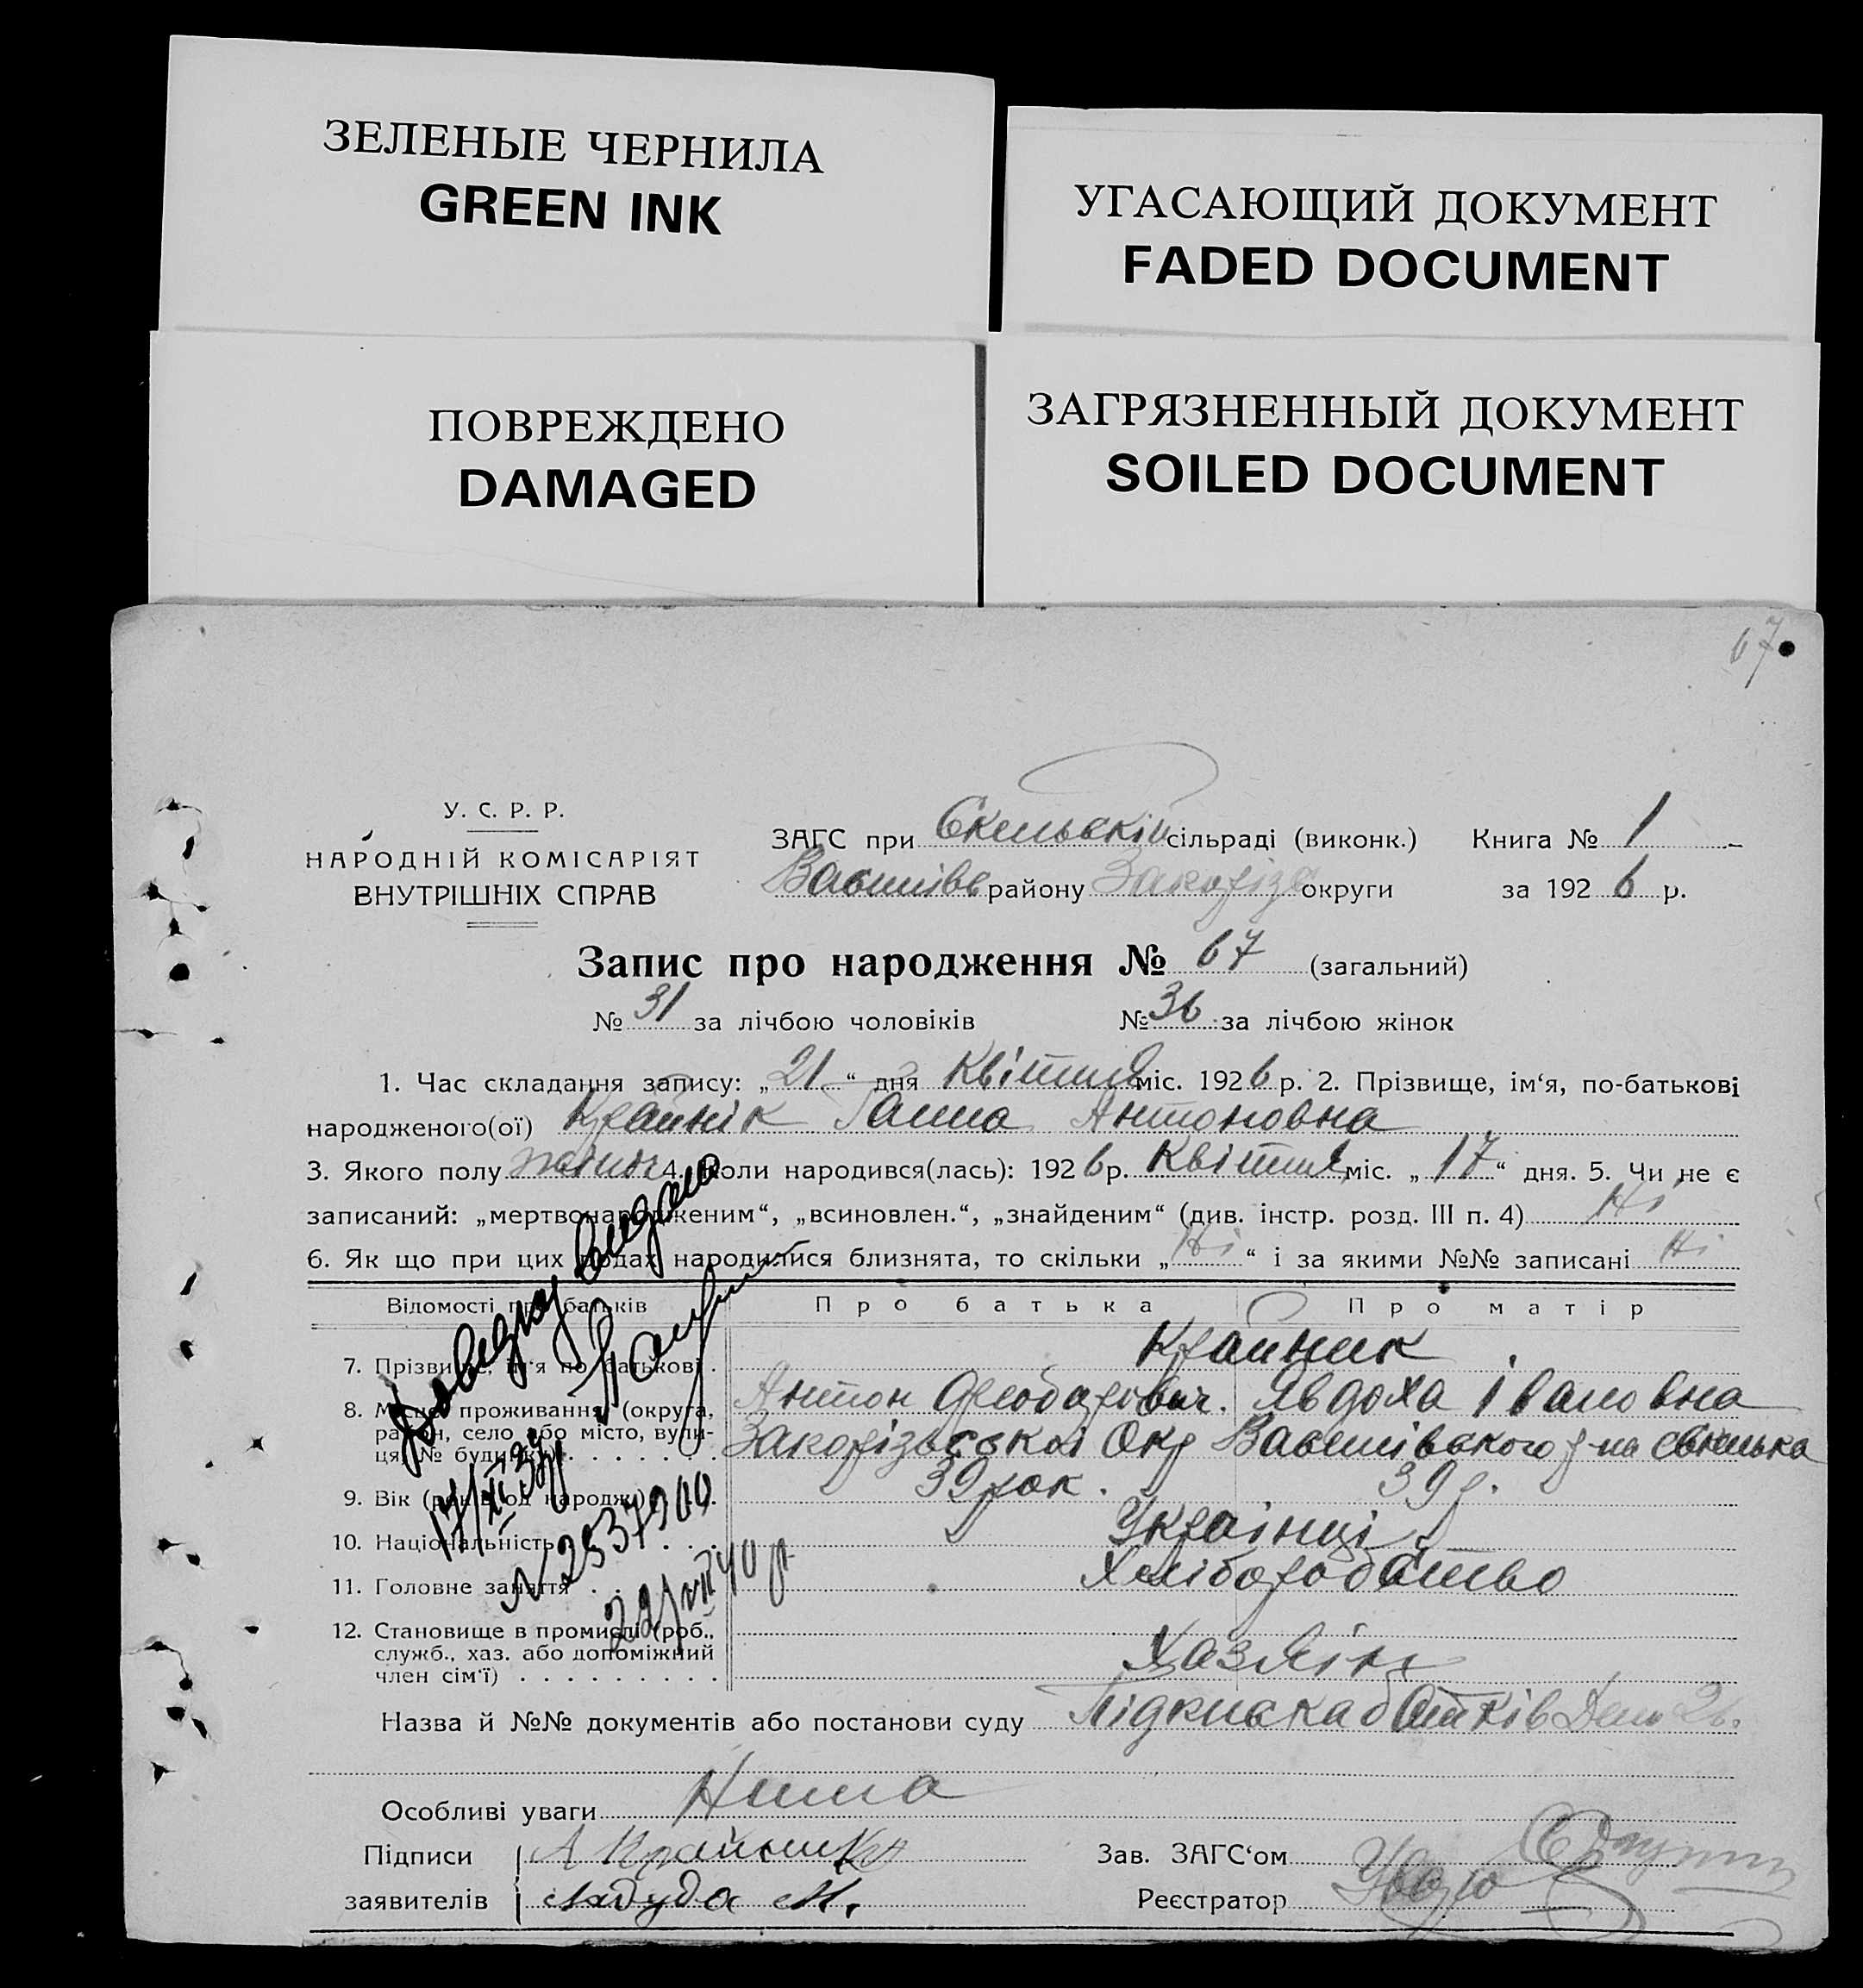 ЗЕЛЕНЫЕ ЧЕРНИЛА
GREEN INK
УГАСАЮЩИЙ ДОКУМЕНТ
FADED DOCUMENT
ПОВРЕЖДЕНО
DAMAGED
ЗАГРЯЗНЕННЫЙ ДОКУМЕНТ
SOILED DOCUMENT
67
У. С. Р. Р.
НАРОДНІЙ КОМІСАРІЯТ
ВНУТРІШНІХ СПРАВ
ЗАГС при Скельскій сільраді (виконк.) Книга № 1
району округи за 1926 р.
Запис про народження № 67 (загальний)
№ 31 за лічбою чоловіків № 36 за лічбою жінок
1. Час складання запису: „21.“ дня Квітня міс. 1926 р. 2. Прізвище, ім‘я, по-батькові
народженого(ої) Крайнік Ганна Антоновна
3. Якого полу жіноч 4. Коли народився(лась): 1926 р. Квітня міс. „17“ дня. 5. Чи не є
записаний: „мертвонародженим“, „всиновлен.“, „знайденим“ (див. інстр. розд. III п. 4) Ні
6. Як що при цих родах народилися близнята, то скільки „Ні“ і за якими №№ записані Ні
Відомості про батьків Про батька Про матір
7. Прізвище, ім‘я по батькові. Крайник
Антон Явдоха Івановна
8. Місце проживання (округа, район, село або місто, вулиця, № будинку)
Окр р-на
9. Вік (рік від народж.) 39 рок. 39 р.
10. Національність Українці
11. Головне заняття Хліборобство
12. Становище в промислі (роб.,
служб., хаз. або допоміжний
член сім‘ї) Хазяїн
Довідку видано
17/XI 37р
N 2537900
22/VII 40 р
Назва й №№ документів або постанови суду Підписка батків
Особливі уваги Нима
Підписи А Крайник
заявителів М.
Зав. ЗАГС‘ом
Реєстратор